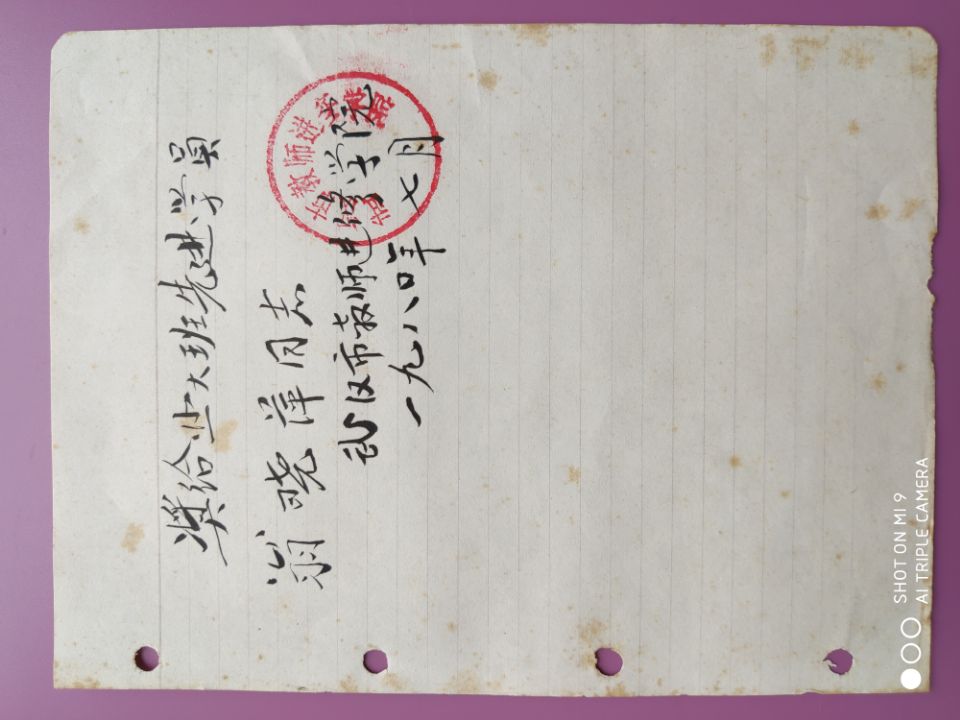 奖给业大班先进学员
翁晓萍同志
武汉市教师进修学院
一九八〇年七月
SHOT ON MI 9
AI TRIPLE CAMERA